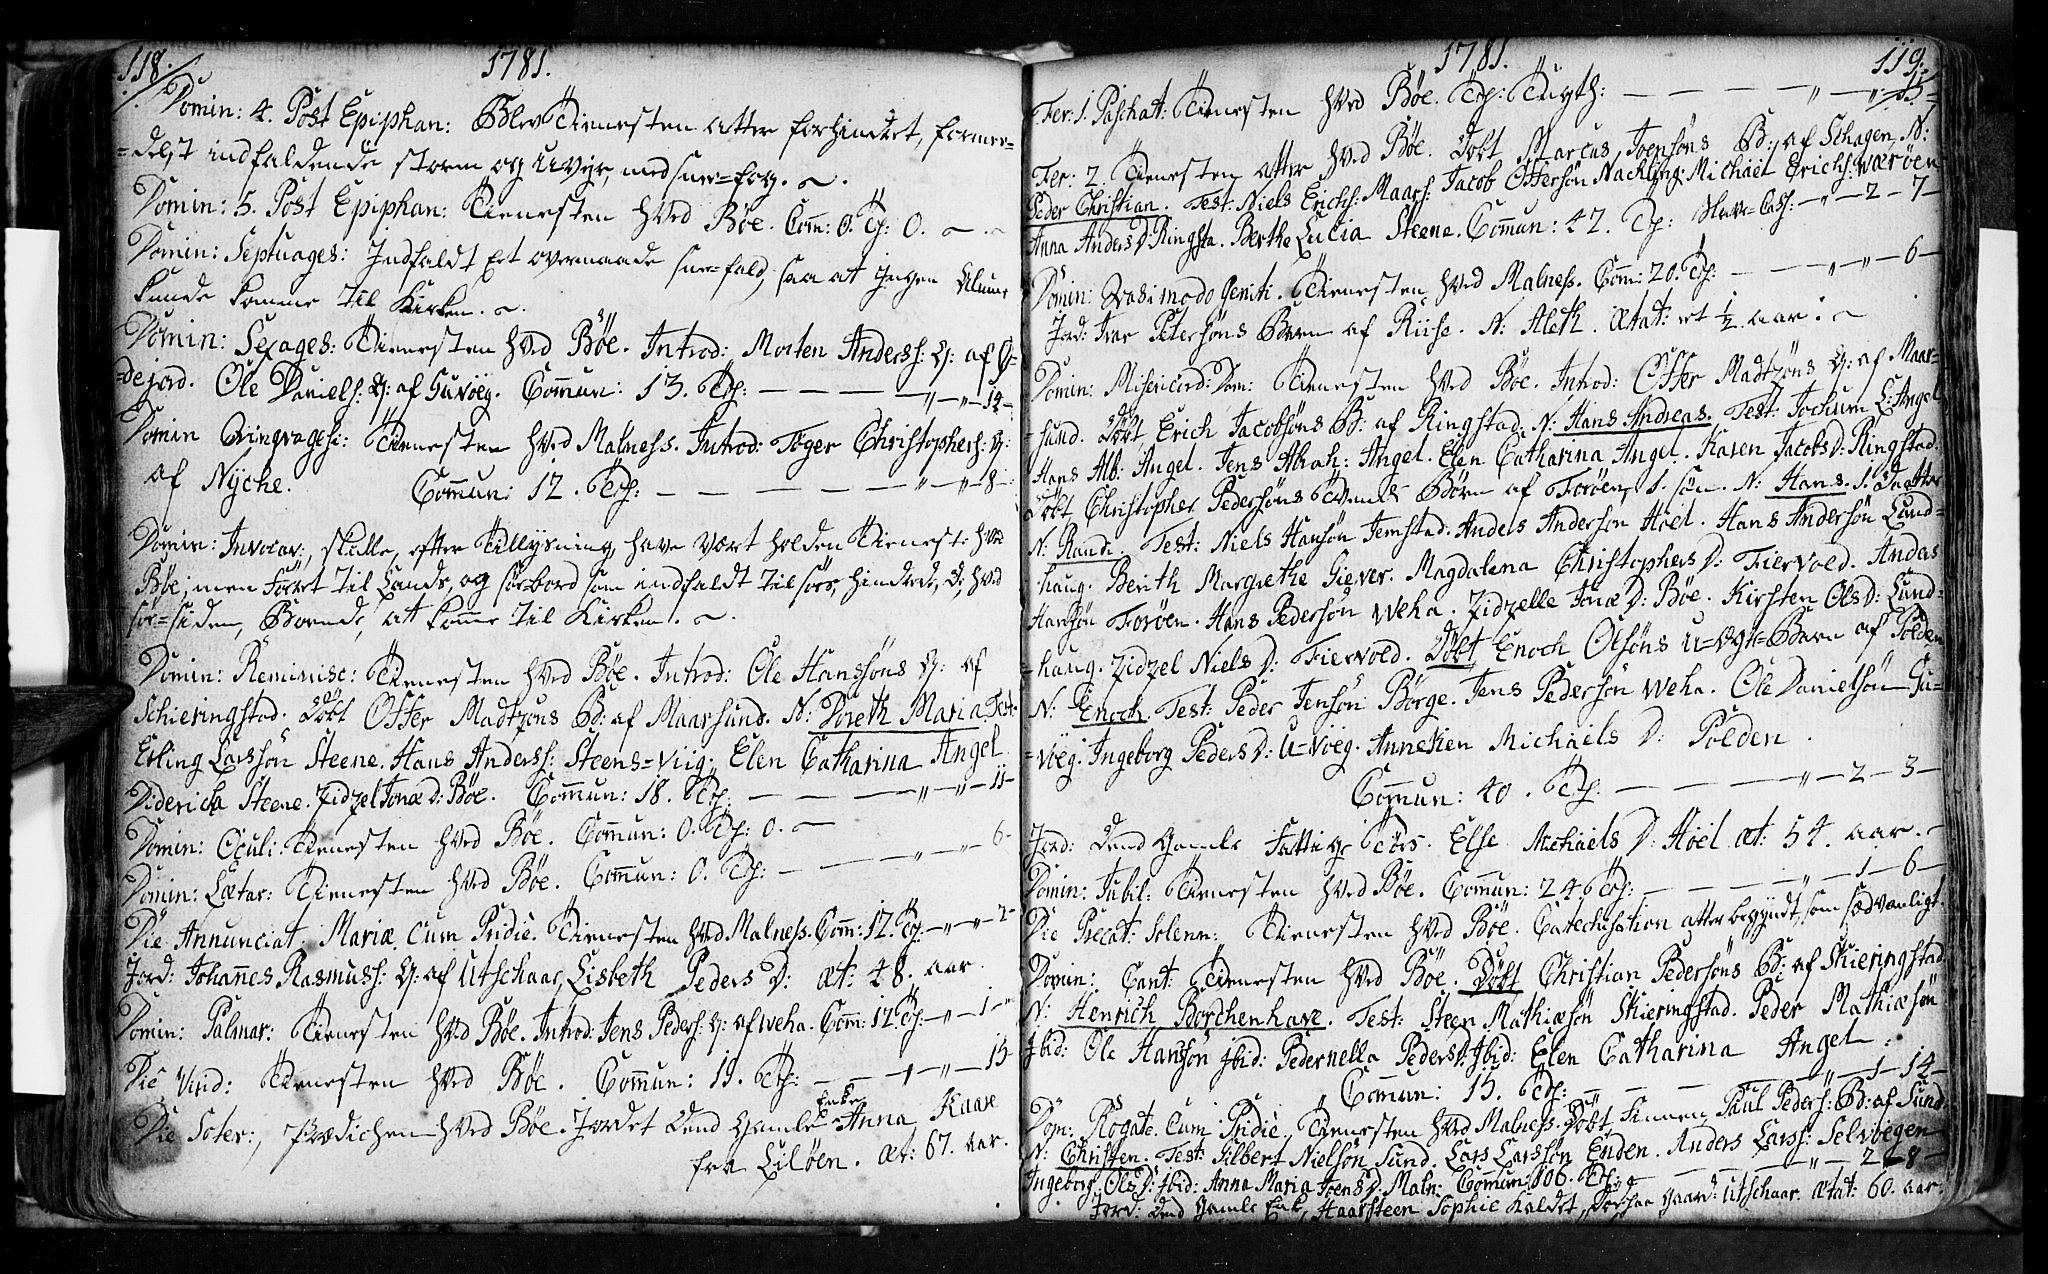 118.
1781.
Domin: 4. Post Epiphan: Blev Tienesten atter forhindret, forme-
=delst indfaldende storm og Uveyr, med snee=fog.
Domin: 5. Post Epiphan: Tienesten hved Böe. Com: 0. Tf: 0.
Domin: Septuages: Indfaldt Et overmaade snee=fald, saa at ingen Almue
kunde komme til Kirken.
Domin: Sexages: Tienesten hved Böe. Introd: Morten Anders: H: af Ö-
=dejord. Ole Daniels: H: af Guvöeg. Commun: 13. Tf: — — — " — " — 14 -
Domin Qvinqvagesi: Tienesten hved Malness. Introd: Töger Christophers: H:
af Nÿche. Commun: 12. Tf: — — — — — " — " 8 -
Domin: Invocav:, skulle, efter Tillysning, have vært holden Tieneste hved
Böe; men Föret til Lands, og som indfaldt til söes, hindrede, D: hved
sör=siden, Boende, at komme til Kirken.
Domin: Reminisc: Tienesten hved Böe. Introd: Ole Hanssöns H: af
Schieringstad. Döbt Otter Madtzöns B: af Maarsund. N: Doreth Maria Test:
Erling Larssön Steene. Hans Anderss: Steens=viig. Elen Catharina Angel
Didericka Steene. Zidzel Jonæ D: Böe. Commun: 18. Tf: — — — " — " — 11 -
Domin: Oculi: Tienesten hved Böe. Commun: 0. Tf: 0.
Domin: Lætar: Tienesten hved Böe. Commun: 0. Tf: — — — " — " — 6 -
Die Annunciat: Mariæ Cum Pridie. Tienesten hved Malness. Com: 12. Tf: — " — " — 2 -
Jord: Johannes Rasmuss: H: af Utschaar, Lisbeth Peders D: æt: 48. aar.
Domin: Palmar: Tienesten hved Böe. Introd: Jens Peders: H: af Weha. Com: 12. Tf: — " — 1 - "
Die Virid: Tienesten hved Böe. Commun: 19. Tf: — — " — " — 15
Die Soter:, Prædichen hved Böe. Jordet dend gamle Enke Anna Kaare
fra Lilöen. æt: 67. aar.
119.
1781.
Fer: 1. Paschat: Tienesten hved Böe. Tf: — — — — " — " 15 -
Fer: 2. Tienesten atter hved Böe. Döbt Marcus Joensöns B: af Schagen, N:
Peder Christian. Test: Niels Erichs: Maars: Jacob Ottersön Nackling: Michäel Erichs: Wæröen
Anna Anders D: Ringsta. Berthe Lucia Steene. Commun: 47. Tf: — " — 2 — 7 -
Domin: Qvasimodo Geniti. Tienesten hved Malness. Com: 20. Tf: — — " — " — 6 -
Jord: Ivar Petersöns Barn af Riise. N: Aleth. Ætat: et ½ aar.
Domin: Misericord: Dom: Tienesten hved Böe. Introd: Otter Madtzöns H: af Maar-
=sund. Döbt Erich Jacobsöns B: af Ringstad. N: Hans Andreas. Test: Jochum L: Angel
Hans Alb: Angel. Jens Abrah: Angel. Elen Catharina Angel. Karen Jacobs D: Ringstad.
Döbt Christopher Pedersöns Tvende Börn af Foröen, 1. sön. N: Hans. 1. Daatter
N: Randi. Test: Niels Hansön Jemstad. Anders Andersön Höel. Hans Andersön Lund=
=haug. Berith Margrethe Giever. Magdalena Christophers D: Fiervold. Anders
Hansön Foröen. Hans Pedersön Weha. Zidzelle Jonæ D: Böe. Kirsten Ols D: Lund-
=haug. Zidzel Niels D: Fiervold. Döbt Enoch Olsöns U=ægte=Barn af Polden
N: Enoch. Test: Peder Jensön Börge. Jens Pedersön Weha. Ole Danielsön Gu=
=vöeg. Ingeborg Peders D: U=vöeg. Annesien Michaels D: Polden.
Commun: 40. Tf: — — — — " — 2 — 3 -
Jord: Dend gamle Fattige Töes. Else Michaels D: Höel æt: 54. aar.
Domin: Jubil: Tienesten hved Böe. Commun: 24. Tf: — — — " — 1 — 6 -
Die Precat: Solenn: Tienesten hved Böe. Catechisation atter begyndt, som sædvanligt.
Domin: Cant: Tienesten hved Böe. Döbt Christian Pedersöns B: af Skieringstad.
N: Henrich Borchenhave. Test: Steen Mathiæsön Skieringstad. Peder Mathiæsön
Ibid: Ole Hansön Ibid: Pedernella Peders D: Ibid: Elen Catharina Angel.
Commun: 15. Tf: — — — " — 1 — 14 -
Dom: Rogate. Cum Pridie. Tienesten hved Malness. Döbt Finnen Paul Peders: B: af Sund.
N: Christen. Test: Gilbert Nielsön Sund. Lars Larssön Enden. Anders Larss: Selvöegen
Ingeborg Ols D: Ibid: Anna Maria Joens D: Maln: Commun: 106. Tf: — — — " — 2 — 8 -
Jord: Dend gamle Enke, Haarsteen Sophie kaldet, paa gaard: Utschaar. Ætat: 60. aar.